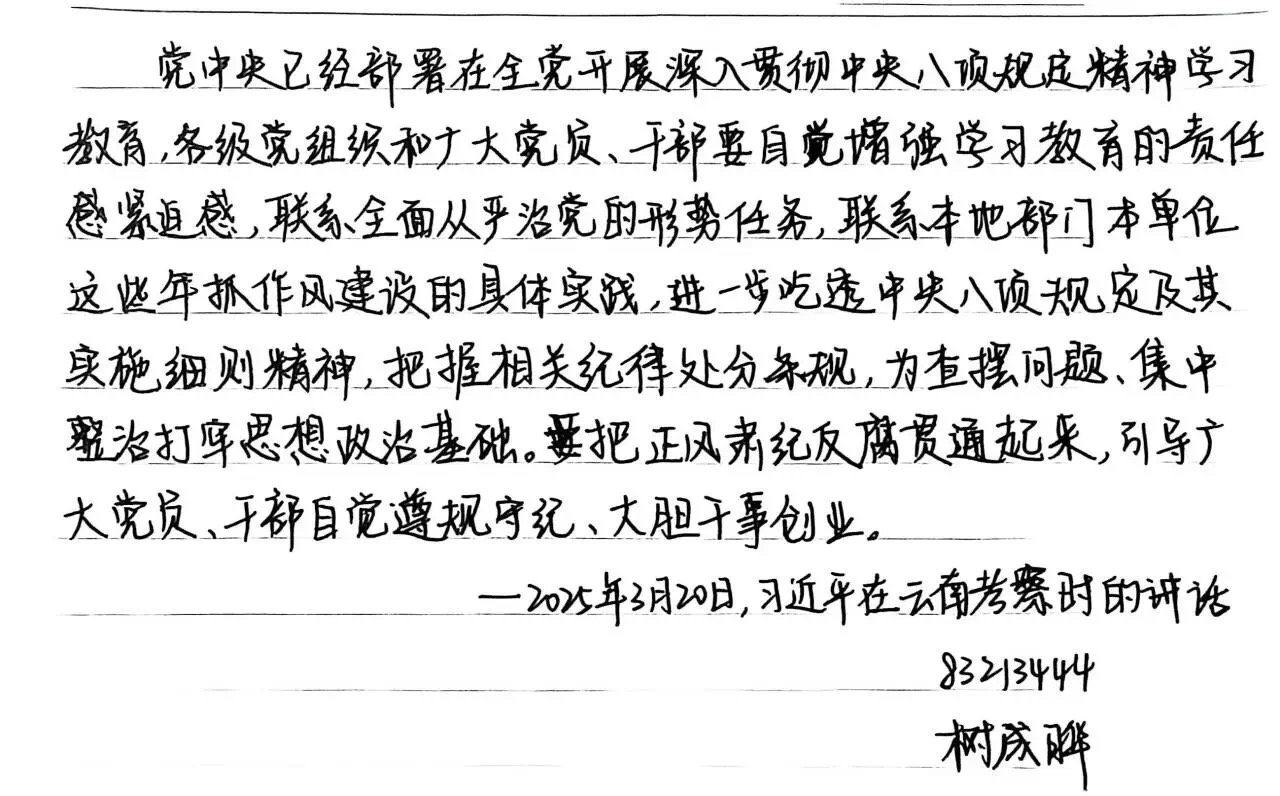 党中央已经部署在全党开展深入贯彻中央八项规定精神学习
教育，各级党组织和广大党员、干部要自觉增强学习教育的责任
感紧迫感，联系全面从严治党的形势任务，联系本地部门本单位
这些年抓作风建设的具体实践，进一步吃透中央八项规定及其
实施细则精神，把握相关纪律处分条规，为查摆问题、集中
整治打牢思想政治基础。要把正风肃纪反腐贯通起来，引导广
大党员、干部自觉遵规守纪、大胆干事创业。
—2025年3月20日，习近平在云南考察时的讲话
83213444
树成